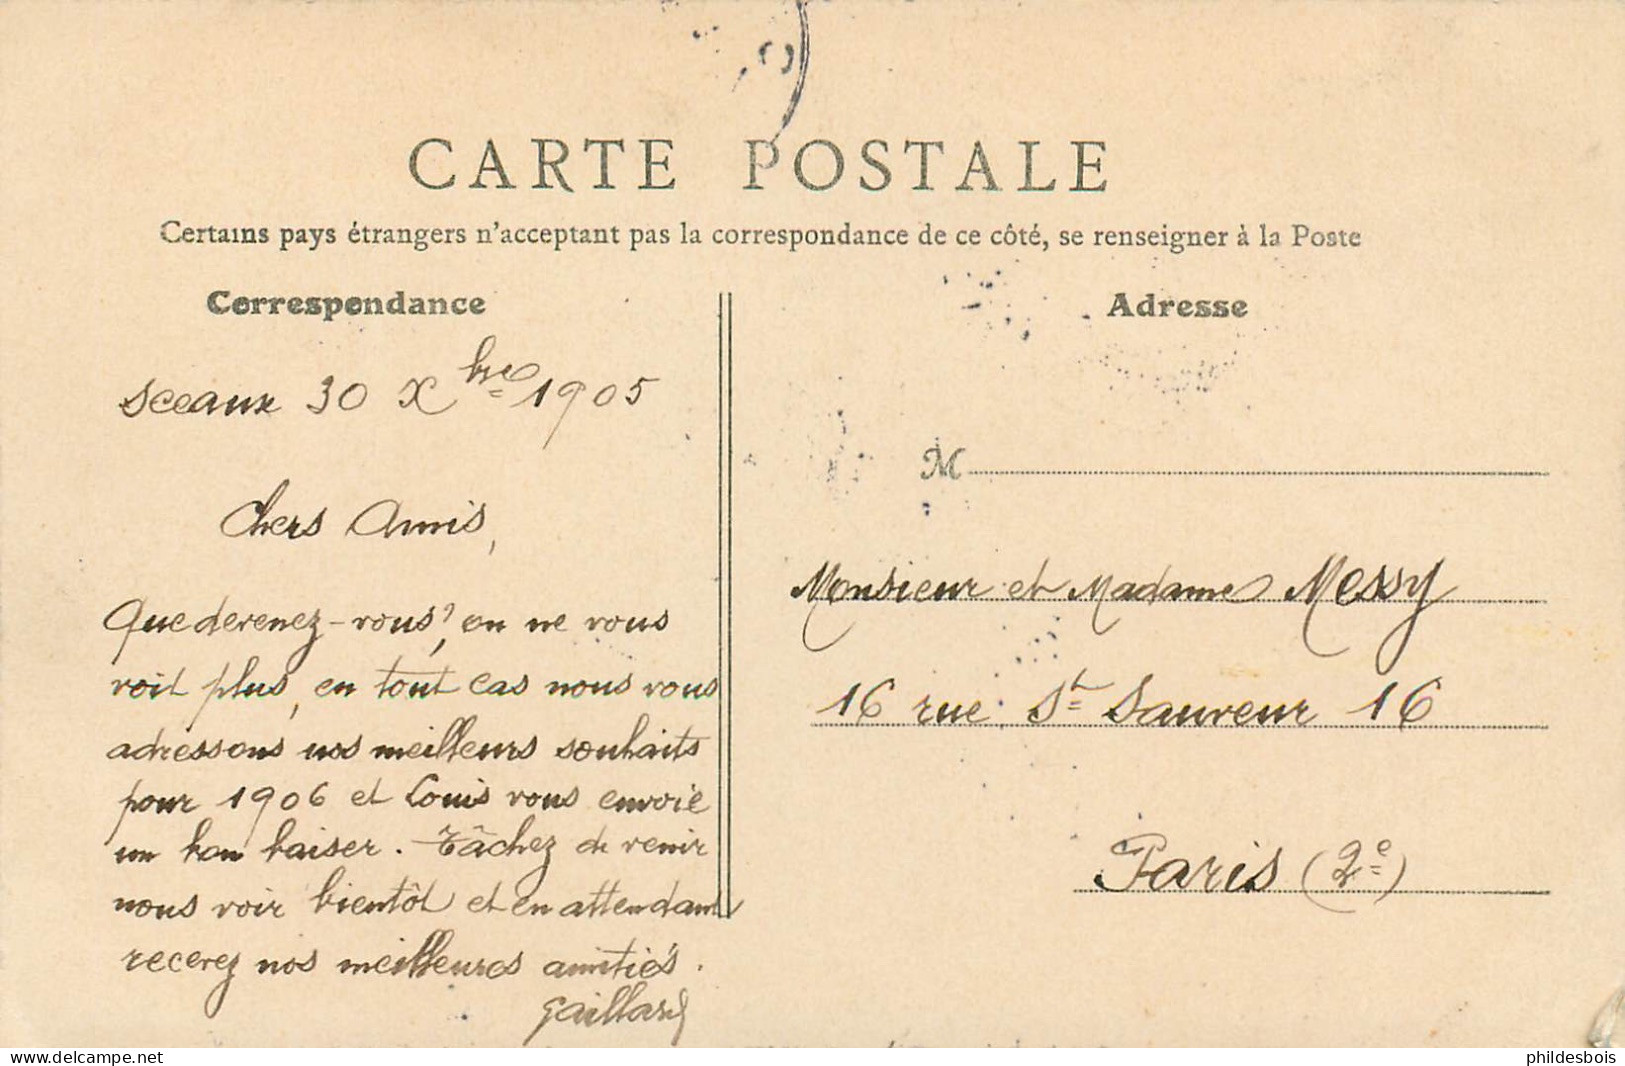 CARTE POSTALE
Certains pays étrangers n'acceptant pas la correspondance de ce côté, se renseigner à la Poste
Correspondance
Sceaux 30 Xbre 1905
Chers Amis,
Que devenez-vous?, on ne vous
voit plus, en tout cas nous vous
adressons nos meilleurs souhaits
pour 1906 et Louis vous envoie
un bon baiser. Tâchez de venir
nous voir bientôt et en attendant
recevez nos meilleures amitiés.
Gaillard
Adresse
M
Monsieur et Madame Messy
16 rue St Sauveur 16
Paris (2e)
delcampe.net
phildesbois